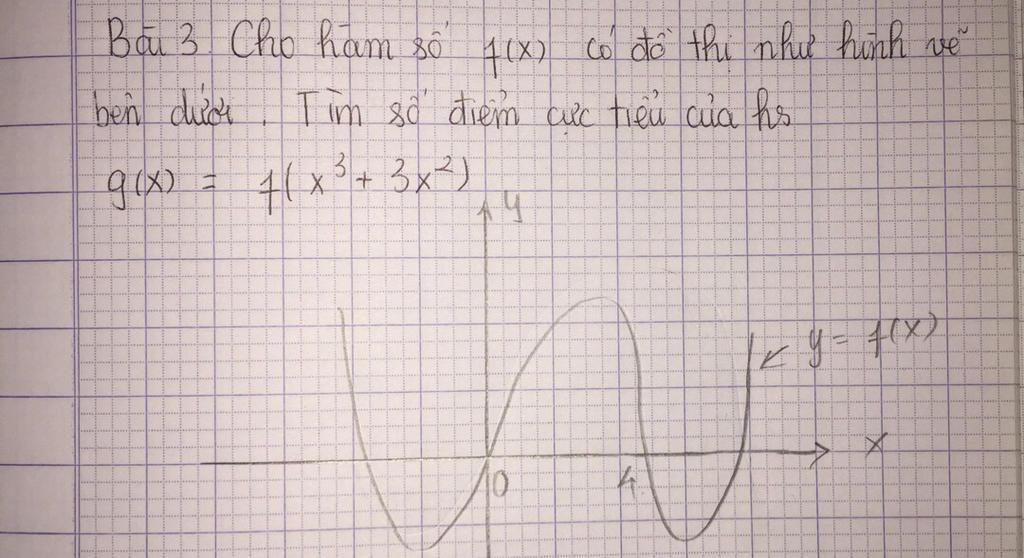 Bài 3. Cho hàm số f(x) có đồ thị như hình vẽ
bên dưới. Tìm số điểm cực tiểu của hs
g(x) = f(x³ + 3x²)
y
y = f(x)
x
0
4